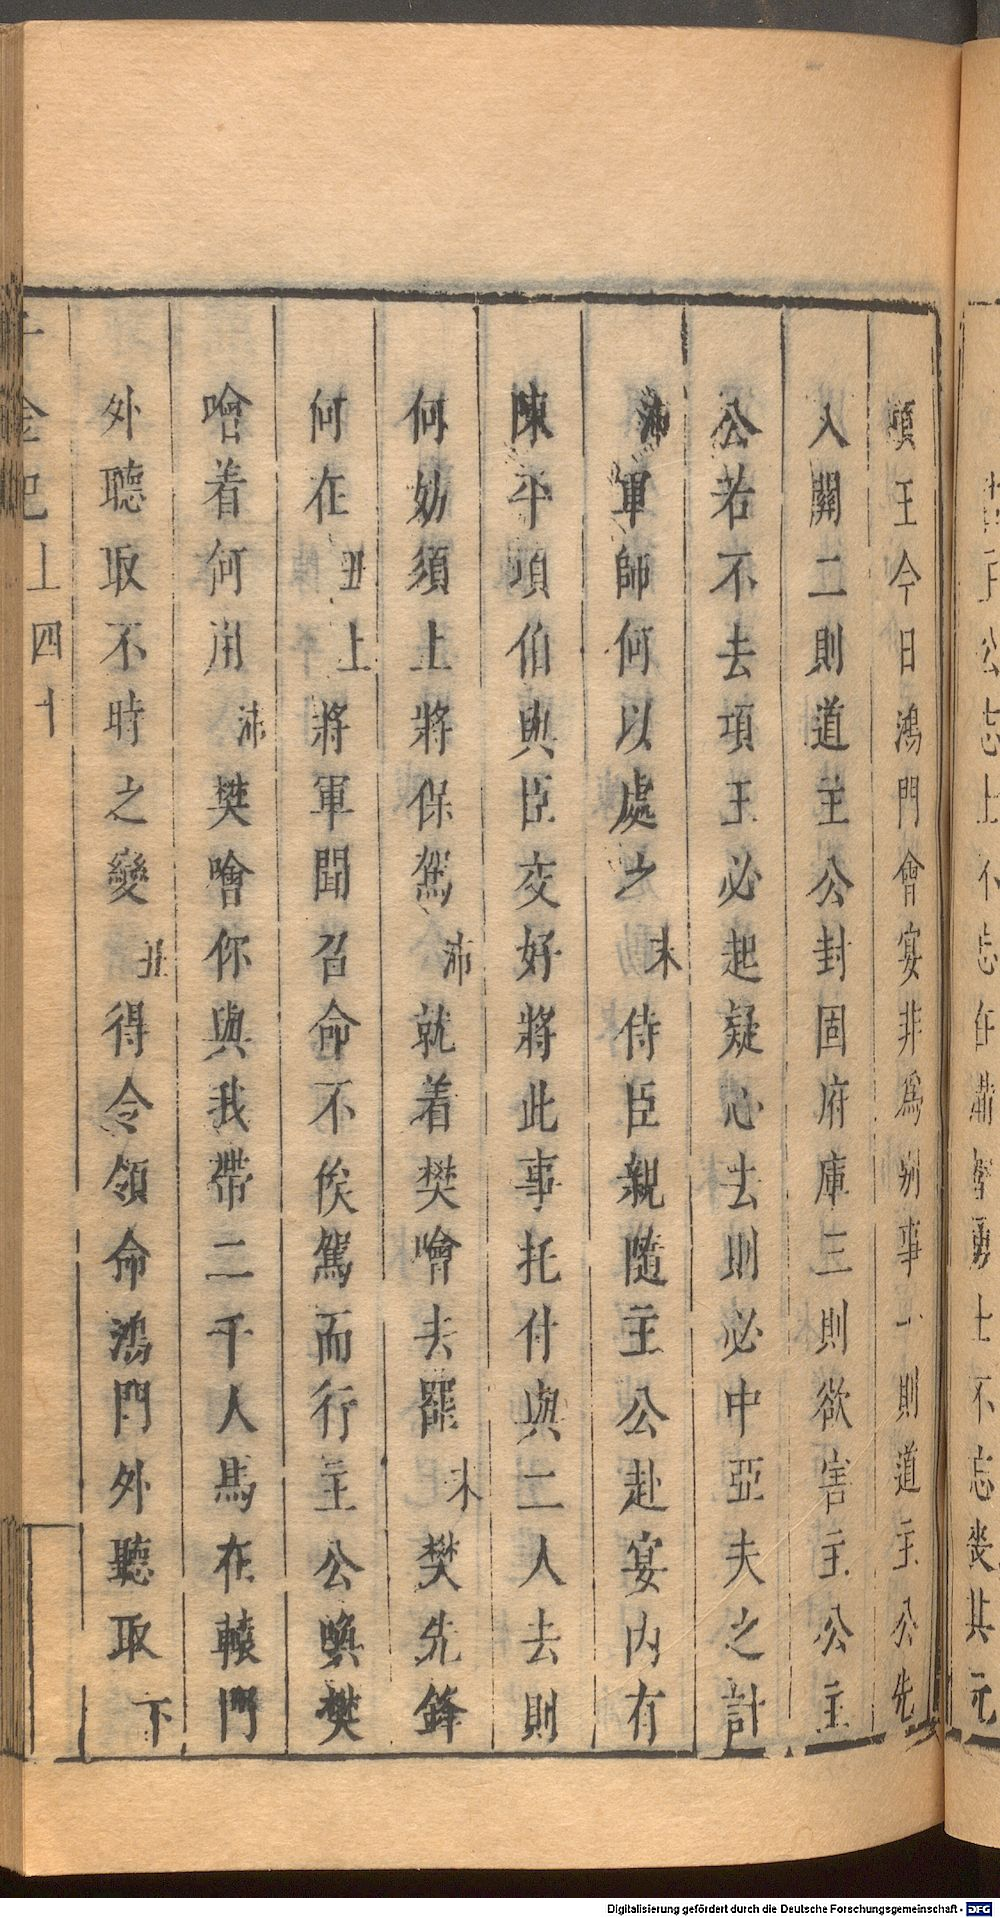 項王今日鴻門會宴非爲別事一則道主公先
入關二則道主公封固府庫三則欲害主公主
公若不去項王必起疑心去則必中亞夫之計
沛軍師何以處之末侍臣親隨主公赴宴內有
陳平項伯與臣交好將此事托付與二人去則
何妨須上將保駕沛就着樊噲去罷末樊先鋒
何在丑上將軍聞召命不俟駕而行主公喚樊
噲着何用沛樊噲你與我帶二千人馬在轅門
外聽取不時之變丑得令領命鴻門外聽取下
千金記上四十
Digitalisierung gefördert durch die Deutsche Forschungsgemeinschaft - DFG